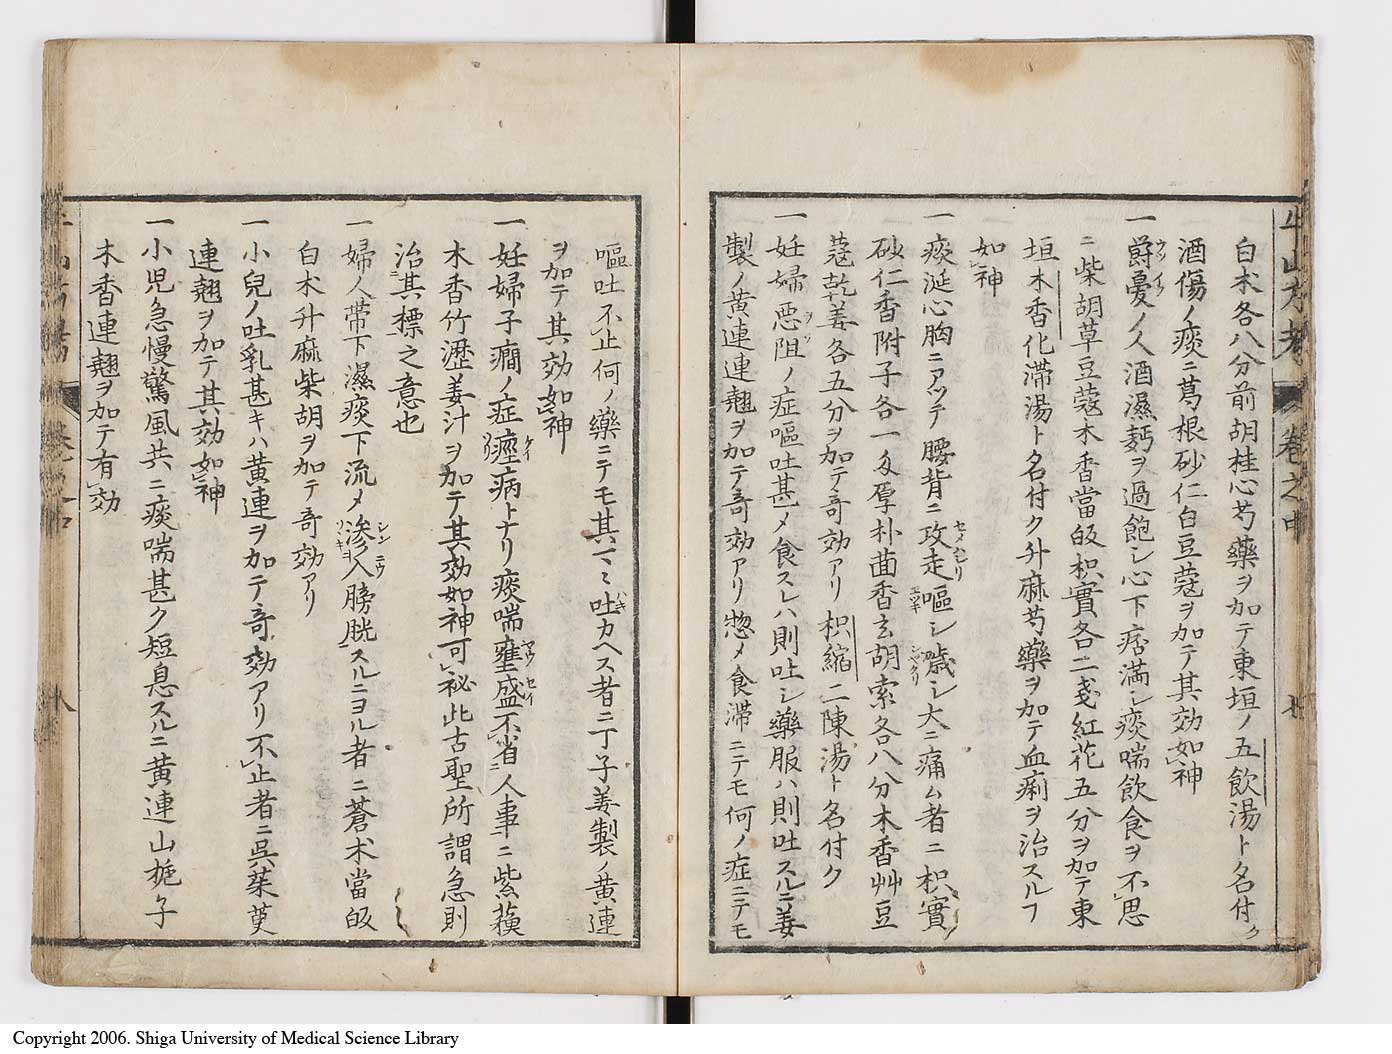 牛山方考 卷之中 七
白朮各八分前胡桂心芍藥ヲ加テ東垣ノ五飲湯ト名付ク
酒傷ノ痰ニ葛根砂仁白豆蔻ヲ加テ其効如神
一爵憂ノ人酒濕麪ヲ過飽シ心下痞満シ痰喘飲食ヲ不思
ニ柴胡草豆蔻木香當皈枳實各二戔紅花五分ヲ加テ東
垣木香化滞湯ト名付ク升麻芍藥ヲ加テ血痢ヲ治スルフ
如神
一痰涎心胸ニアツテ腰背ニ攻走嘔シ噦シ大ニ痛ム者ニ枳實
砂仁香附子各一匁厚朴茴香玄胡索各八分木香艸豆
蔻乾姜各五分ヲ加テ奇効アリ枳縮二陳湯ト名付ク
一妊婦悪阻ノ症嘔吐甚〆食スレハ則吐シ藥服ハ則吐スルニ姜
製ノ黄連連翹ヲ加テ奇効アリ惣〆食滞ニテモ何ノ症ニテモ
嘔吐不止何ノ藥ニテモ其マヽ吐カヘス者ニ丁子姜製ノ黄連
ヲ加テ其効如神
一妊婦子癇ノ症痙病トナリ痰喘壅盛不省人事ニ紫蘓
木香竹瀝姜汁ヲ加テ其効如神可祕此古聖所謂急則
治其標之意也
一婦人帶下濕痰下流〆滲入膀胱スルニヨル者ニ蒼朮當皈
白朮升麻柴胡ヲ加テ奇効アリ
一小兒ノ吐乳甚キハ黄連ヲ加テ竒効アリ不止者ニ呉茱萸
連翹ヲ加テ其効如神
一小児急慢驚風共ニ痰喘甚ク短息スルニ黄連山梔子
木香連翹ヲ加テ有効
Copyright 2006. Shiga University of Medical Science Library